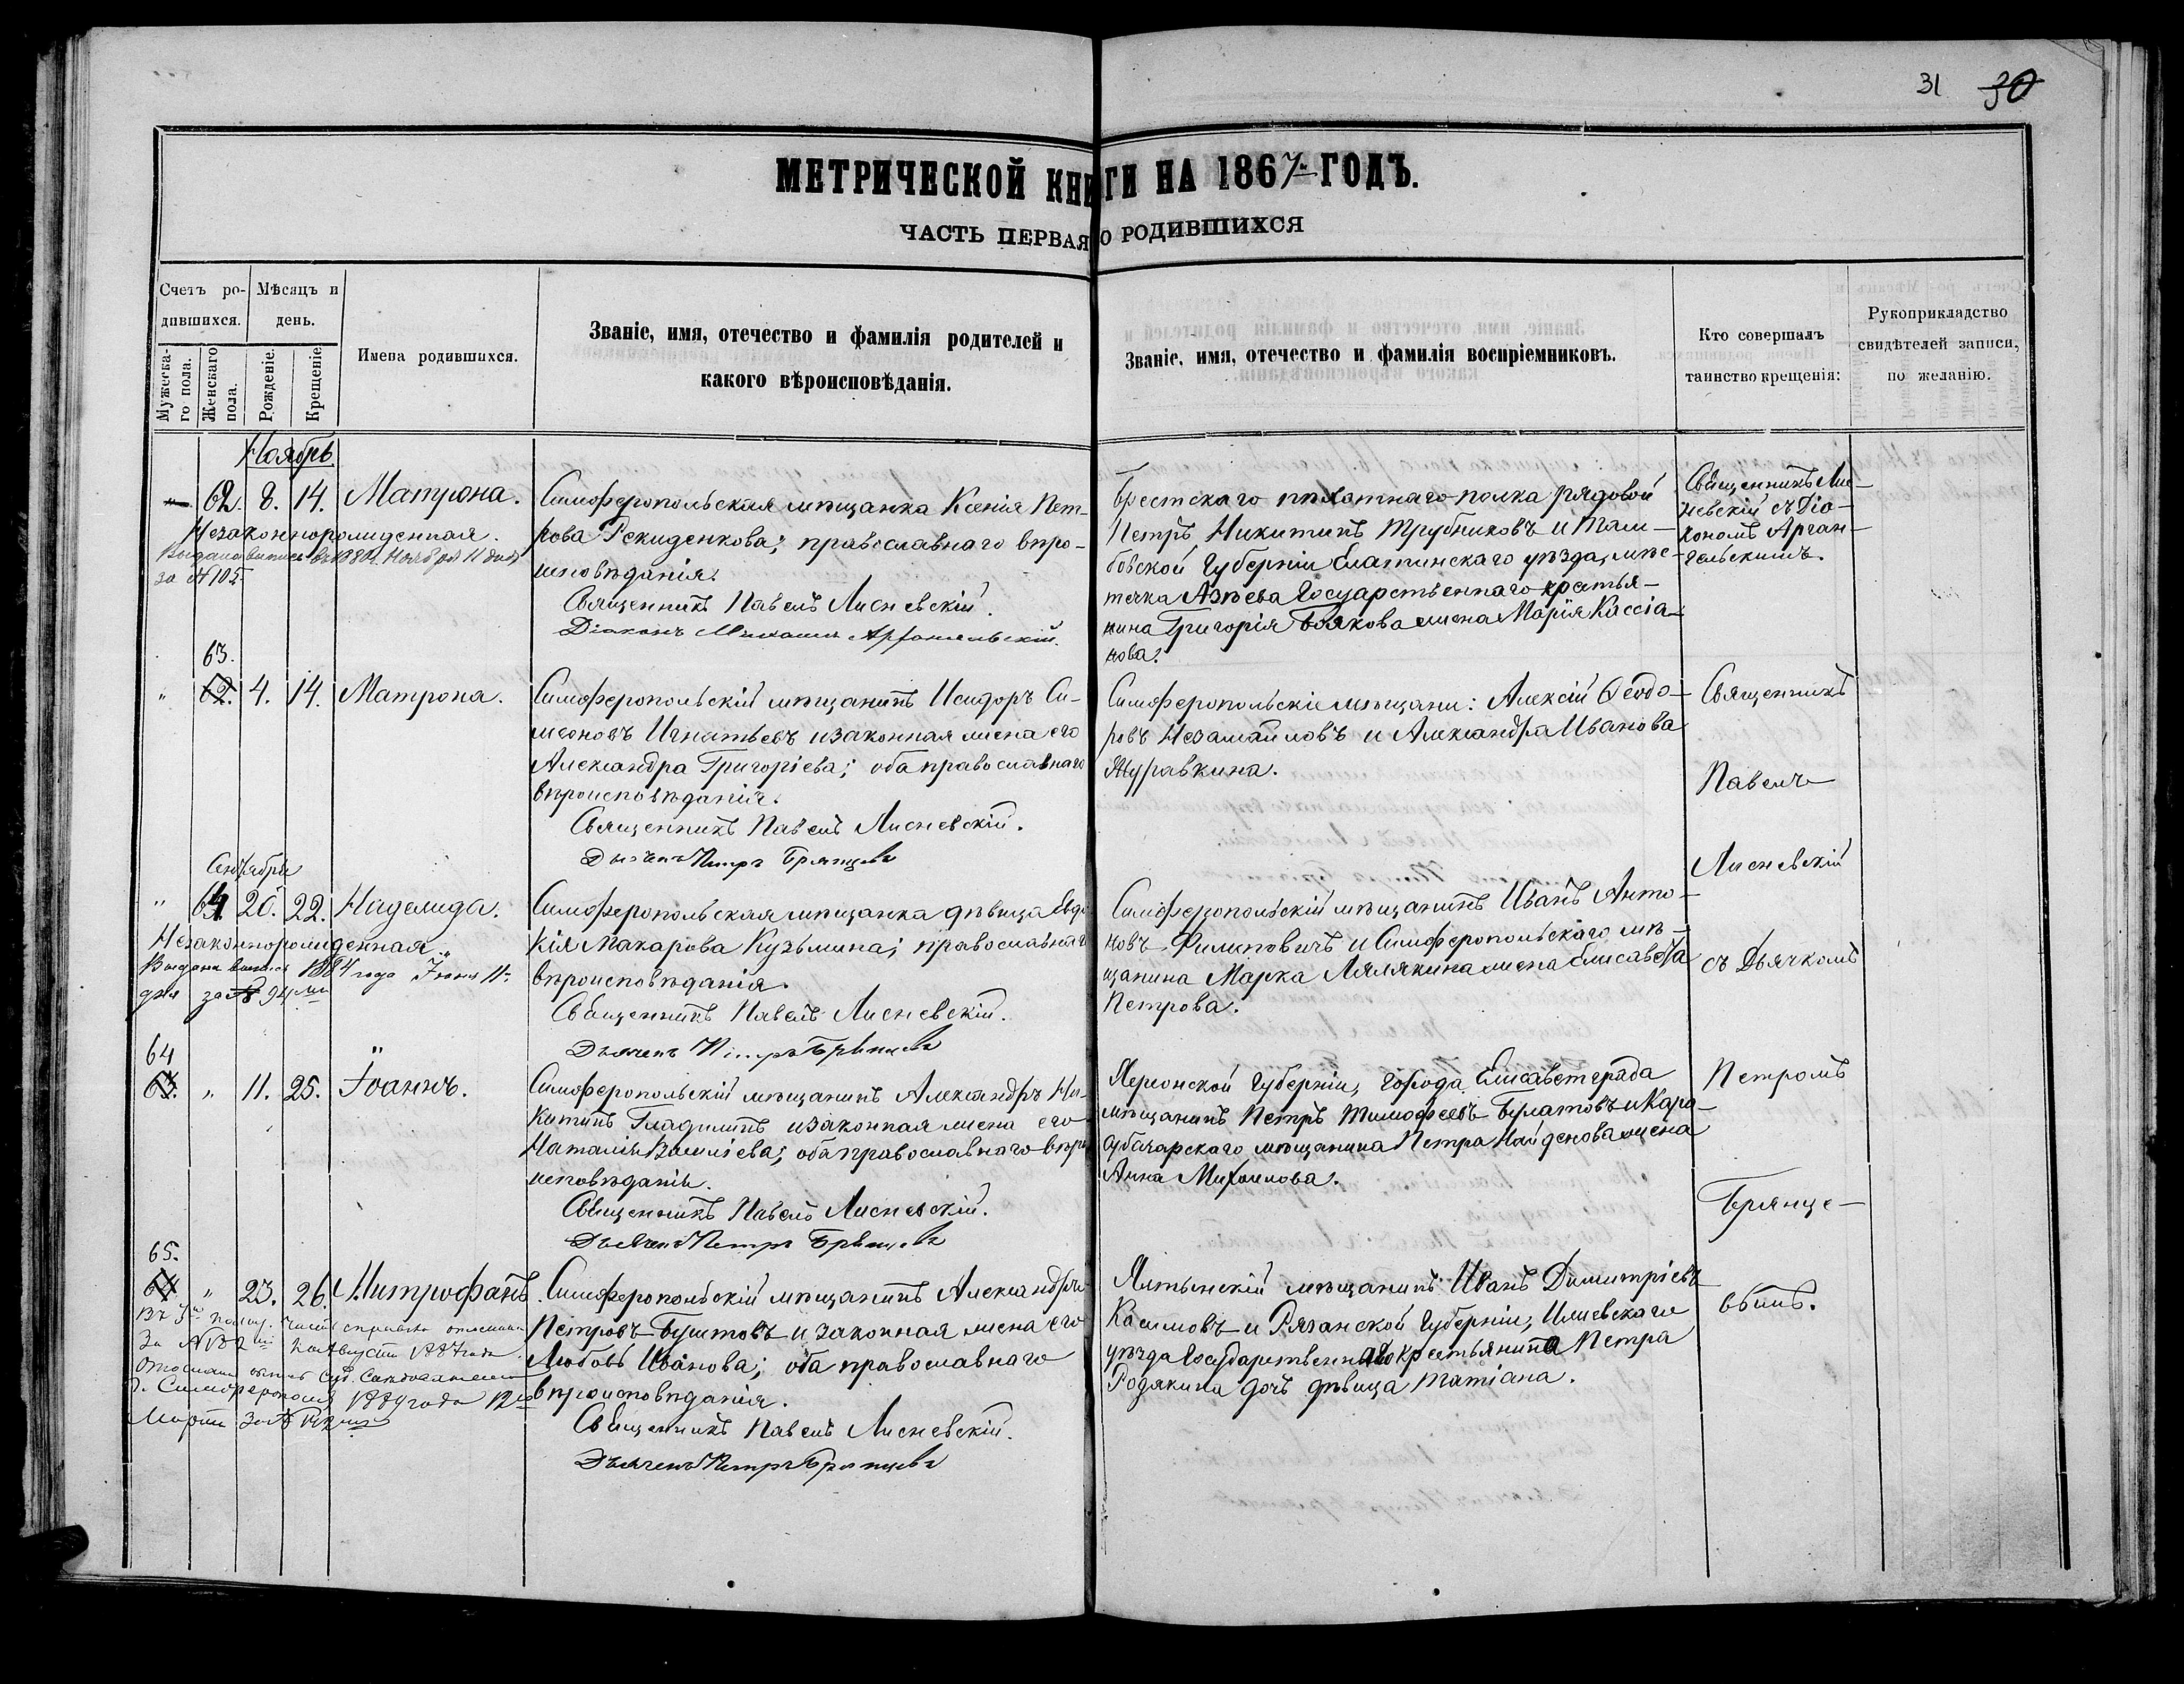 31 30
МЕТРИЧЕСКОЙ КНИГИ НА 1867й ГОДЪ.
ЧАСТЬ ПЕРВАЯ О РОДИВШИХСЯ
Счетъ ро-
дившихся.
Мужеска-
го пола.
Женскаго
пола.
Мѣсяцъ и
день.
Рожденіе.
Крещеніе.
Имена родившихся.
Званіе, имя, отечество и фамилія родителей и
какого вѣроисповѣданія.
Званіе, имя, отечество и фамилія воспріемниковъ.
Кто совершалъ
таинство крещенія:
Рукоприкладство
свидѣтелей записи,
по желанію.
Ноябрь
62. 8. 14. Матрона.
Незаконнорожденная.
за №105
Симферопольская мѣщанка Ксенія Пет-
рова Рекиденкова; православнаго вѣро-
исповѣданія.
Священникъ Павелъ Лисневскій.
Діаконъ Михаилъ Архангельскій.
Брестскаго пѣхотнаго полка рядовой
Петръ Никитинъ Трубниковъ и Там-
бовской Губерніи Елатинскаго уѣзда, мѣс-
течка Азѣева Госуарственнаго крестья-
нина Григорія Боякова жена Марія Кассіа-
нова.
Священникъ Лис-
невскій съ Діа-
кономъ Архан-
гельскимъ.
63.
" 62. 4. 14. Матрона.
Симферопольскій мѣщанинъ Исидоръ Си-
меоновъ Игнатьевъ и законная жена его
Александра Григоріева; оба православнаго
вѣроисповѣданія.
Священникъ Павелъ Лисневскій.
Дьячекъ Петръ Брянцевъ
Симферопольскіе мѣщани: Алексій Ѳеодо-
ровъ Незамайловъ и Александра Иванова
Журавкина.
Священникъ
Павелъ
Лисневскій
съ Дьячкомъ
Петромъ
Брянце-
вымъ.
Сентября
" 64 20. 22. Надежда.
Незаконнорожденная.
Выдана выпись 1884 года Іюня 11-
дня за № 94
Симферопольская мѣщанка дѣвица Евдо
кія Макарова Кузьмина; православнаго
вѣроисповѣданія.
Священникъ Павелъ Лисневскій.
Дьячекъ Петръ Брянцевъ
Симферопольскій мѣщанинъ Иванъ Анто-
новъ Филиповичъ и Симферопольскаго мѣ-
щанина Марка Лялякина жена Елисавета
Петрова.
64 "
63. " 11. 25. Іоаннъ.
Симферопольскій мѣщанинъ Александръ Ни-
китинъ Гладилинъ и законная жена его
Наталія Василіева; оба православнаго вѣро
исповѣданія.
Священникъ Павелъ Лисневскій.
Дьячекъ Петръ Брянцевъ
Херсонской Губерніи, города Елисаветграда
мѣщанинъ Петръ Тимофеевъ Булатовъ и Кара-
субазарскаго мѣщанина Петра Найденова жена
Анна Михаилова.
65.
64 " 23. 26. Митрофанъ.
г. Симферополя 1889 года 12го
Марта за №
Симферопольскій мѣщанинъ Александръ
Петровъ и законная жена его
Любовь Иванова; оба православнаго
вѣроисповѣданія.
Священникъ Павелъ Лисневскій.
Дьячекъ Петръ Брянцевъ
Ялтынскій мѣщанинъ Иванъ Димитріевъ
Касимовъ и Рязанской Губерніи,
уѣзда Государственнаго крестьянина Петра
Родякина дочь дѣвица Татіана.